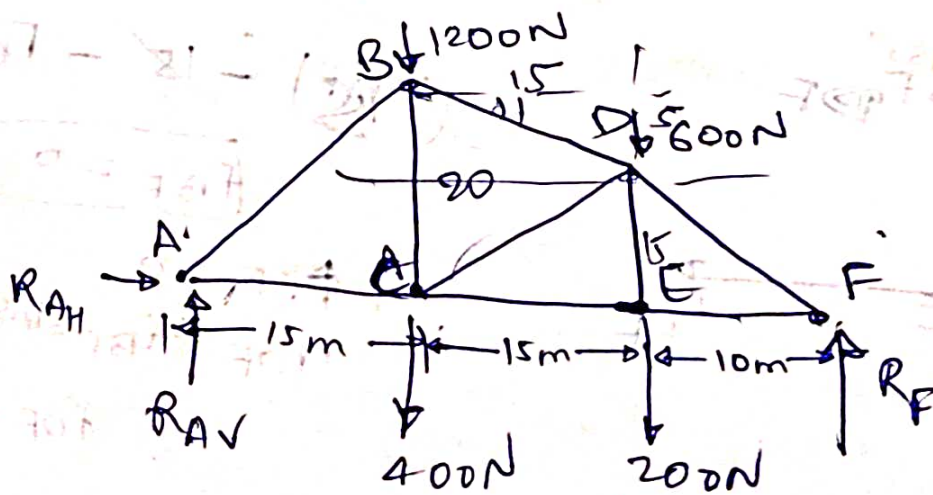 B 1200N
15
D 5 600N
20
A C
5 E F
R_AH
15m 15m 10m
R_AV R_F
400N 200N